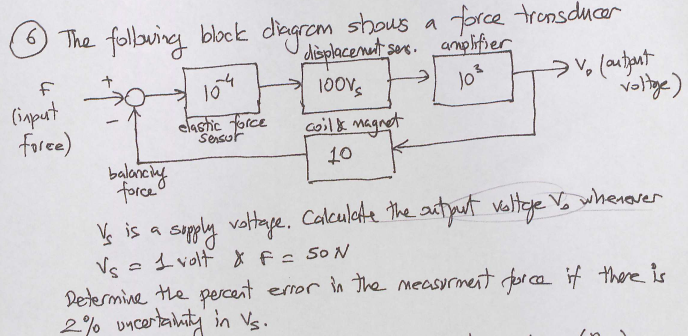 6 The following block diagram shows a force transducer
displacement sens. amplifier
F + 10⁻⁴ 100Vs 10³ V₀ (output
(input voltage)
force) - elastic force coil & magnet
sensor
10
balancing
force
Vs is a supply voltage. Calculate the output voltage V₀ whenever
Vs = 1 volt & F = 50 N
Determine the percent error in the measurment force if there is
2% uncertainity in Vs.